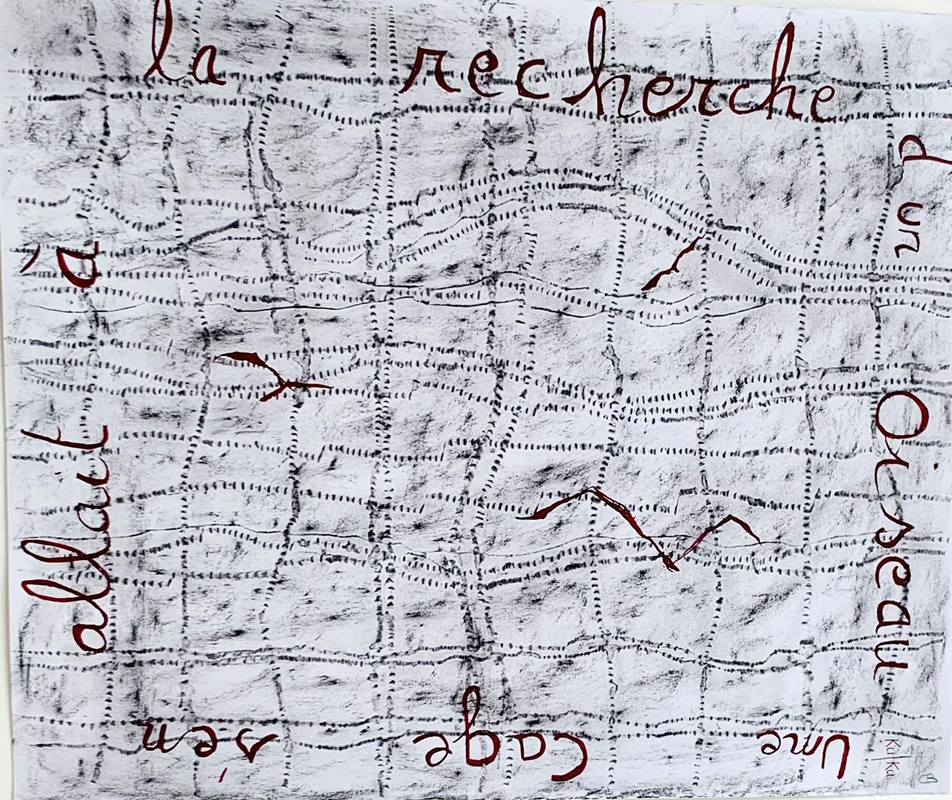 Une Cage s'en
allait à
la recherche
d un Oiseau
KafKa